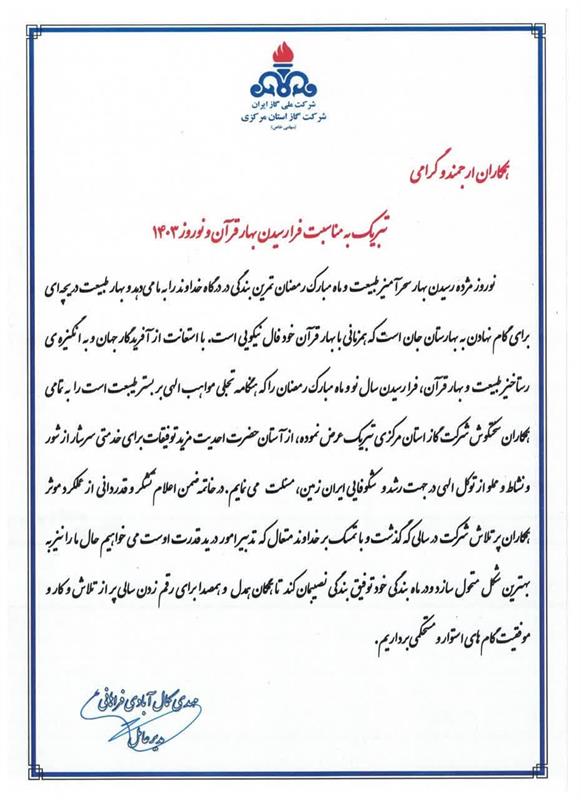 شرکت ملی گاز ایران
شرکت گاز استان مرکزی
(سهامی خاص)
همکاران ارجمند و گرامی
تبریک به مناسبت فرا رسیدن بهار قرآن و نوروز ۱۴۰۳
نوروز مژده رسیدن بهار سحرآمیز طبیعت و ماه مبارک رمضان تمرین بندگی در درگاه خداوند را به ما می دهد و بهار طبیعت دریچه ای
برای گام نهادن به بهارستان جان است که همزمانی با بهار قرآن خود فال نیکویی است. با استعانت از آفریدگار جهان و به انگیزه ی
رستاخیز طبیعت و بهار قرآن، فرا رسیدن سال نو و ماه مبارک رمضان را که هنگامه تجلی مواهب الهی بر بستر طبیعت است را به تمامی
همکاران سختکوش شرکت گاز استان مرکزی تبریک عرض نموده، از آستان حضرت احدیت مزید توفیقات برای خدمتی سرشار از شور
و نشاط و مملو از توکل الهی در جهت رشد و شکوفایی ایران زمین، مسئلت می نمایم. در خاتمه ضمن اعلام تشکر و قدردانی از عملکرد موثر
همکاران پر تلاش شرکت در سالی که گذشت و با تمسک بر خداوند متعال که تدبیر امور در ید قدرت اوست می خواهیم حال ما را نیز به
بهترین شکل متحول سازد و در ماه بندگی خود توفیق بندگی نصیبمان کند تا همگان همدل و همصدا برای رقم زدن سالی پر از تلاش و کار و
موفقیت گام های استوار و مستحکمی برداریم.
مهدی کمال آبادی فراهانی
مدیرعامل